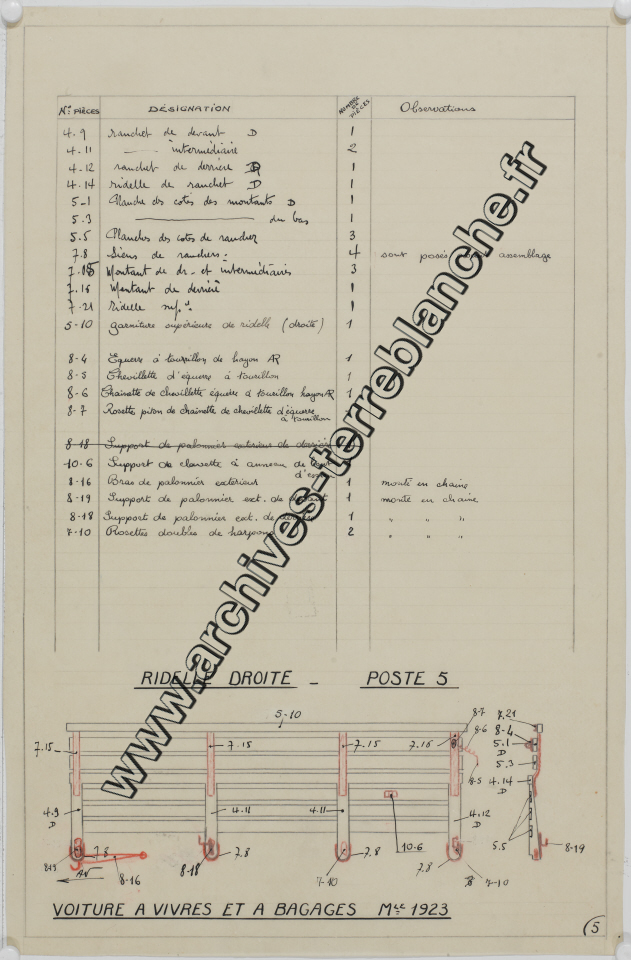 Nos PIÈCES DÉSIGNATION NOMBRE DE PIÈCES Observations
4.9 ranchet de devant D 1
4.11 —— intermédiaire 2
4.12 ranchet de derrière D 1
4.14 ridelle de ranchet D 1
5-1 Planche des cotés des montants D 1
5.3 —— du bas 1
5.5 Planches des cotés de rancher 3
7.8 Liens de ranchers: 4 sont posés assemblage
7.15 Montant de dr- et intermédiaires 3
7.16 Montant de derrière 1
7-21 Ridelle 1
5-10 garniture supérieure de ridelle (droite) 1
8-4 Equerre à tourillon de hayon AR 1
8-5 Chevillette d'équerre à tourillon 1
8-6 Chainette de chevillette équerre à tourillon hayon AR 1
8-7 Rosette piton de chainette de chevillette d'équerre
à tourillon
8-18 Support de palonnier exterieur de derrière
10.6 Support de clavette à anneau de
d'ess
8-16 Bras de palonnier exterieur 1 monté en chaine
8-19 Support de palonnier ext. de devant 1 monté en chaine
8-18 Support de palonnier ext. de derrière 1 " " "
7-10 Rosettes doubles de harpons 2 " " "
www.archives-terreblanche.fr
RIDELLE DROITE - POSTE 5
5-10 8-7 7.21
8-6 8-4
7.15 7.15 7.15 7.16 5.1
D
5.3
8-5 4.14
D
4.9 4.11 4.11 4.12
D D
10.6 5.5
8-19 7.8 8-18 7.8 7.8 7.8 8-19
AV 8-16 7-10 7-10
VOITURE A VIVRES ET A BAGAGES Mle 1923
5